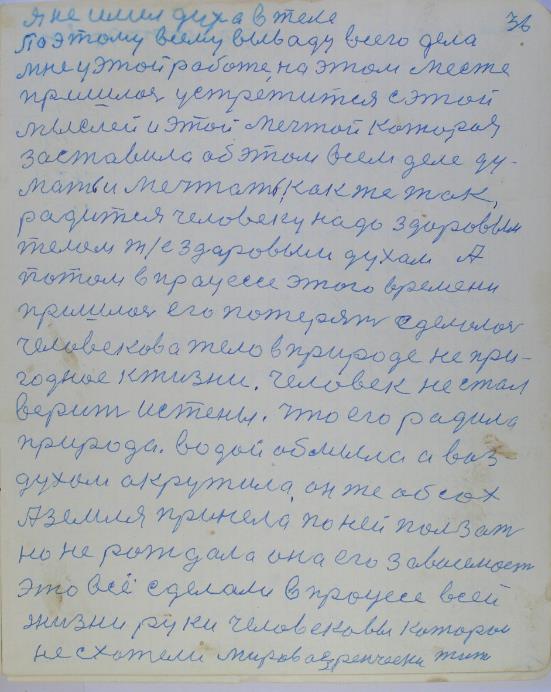 36
Я не имил духа в теле
Поэтому всему вываду всего дела
мне у этой работе, на этом месте
пришлося устретится с этой
мыслей и этой мечтой которая
заставила об этом всем деле ду-
мать и мечтать, как же так,
радится человеку надо здоровым
телом т/с здаровым духам А
потом в процессе этого времени
пришлося его потерять сделалося
человекова тело в природе не при-
годное к жизни. Человек не стал
верить истены. что его радила
природа. водой обмыла а воз-
духом окружила, он же обсох
А земля принела по ней ползат
но не рождала она его
это всё сделали в процесе всей
жизни руки человековы которои
не схотели жит